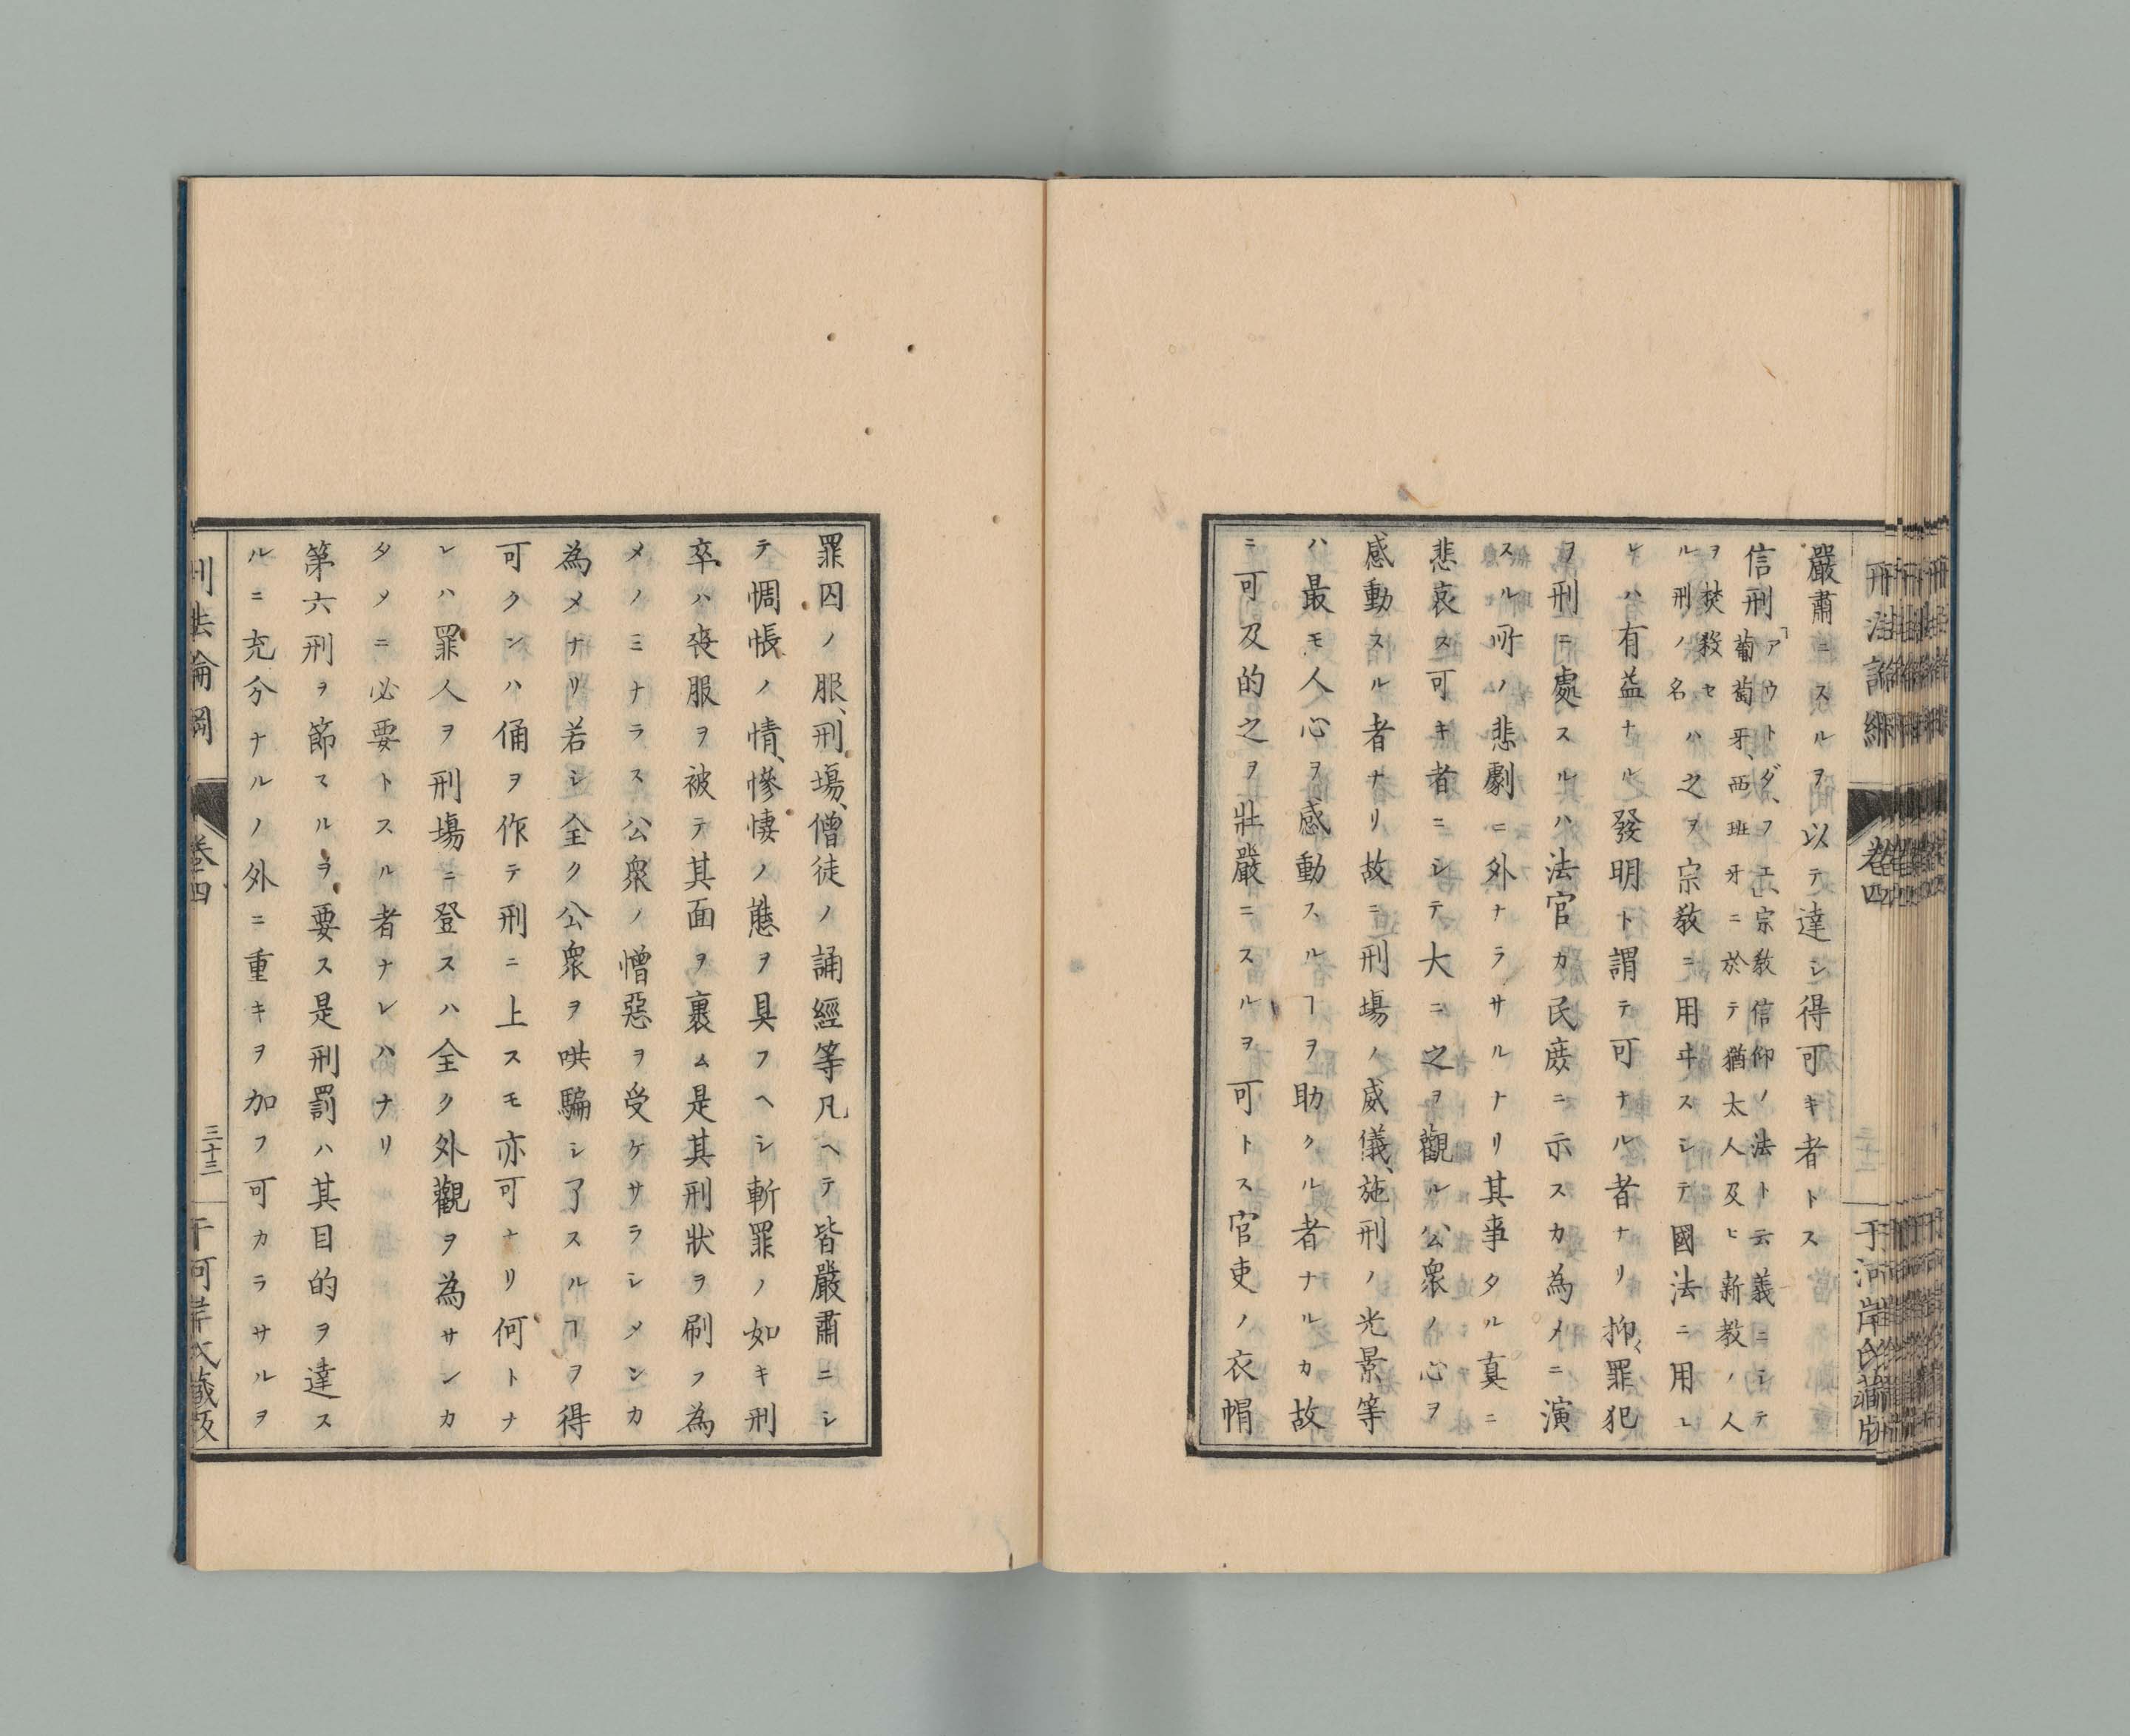 嚴肅ニスルヲ以テ達シ得可キ者トス
信刑「アウトダ、フエ、」宗敎信仰ノ法ト云義ニシテ
葡萄牙、西班牙ニ於テ猶太人及ヒ新敎ノ人
ヲ焚殺セ
ル刑ノ名ハ之ヲ宗敎ニ用ヰスシテ國法ニ用ヒ
ハ有益ナル發明ト謂テ可ナル者ナリ抑罪犯
ヲ刑ニ處スルハ法官カ民庶ニ示スカ為メニ演
スル所ノ悲劇ニ外ナラサルナリ其事タル真ニ
悲哀ス可キ者ニシテ大ニ之ヲ觀ル公衆ノ心ヲ
感動スル者ナリ故ニ刑場ノ威儀、施刑ノ光景等
ハ最モ人心ヲ感動スルヿヲ助クル者ナルカ故
ニ可及的之ヲ壯嚴ニスルヲ可トス官吏ノ衣帽
刑法論綱
卷四
于河岸氏藏版
罪囚ノ服、刑塲、僧徒ノ誦經等凡ヘテ皆嚴肅ニシ
テ惆悵ノ情、慘悽ノ態ヲ具フヘシ斬罪ノ如キ刑
卒ハ喪服ヲ被テ其面ヲ裹ム是其刑狀ヲ刷フ為
メノミナラス公衆ノ憎惡ヲ受ケサラシメンカ
為メナリ若シ全ク公衆ヲ哄騙シ了スルヿヲ得
可クンハ俑ヲ作テ刑ニ上スモ亦可ナリ何トナ
レハ罪人ヲ刑塲ニ登スハ全ク外觀ヲ為サンカ
タメニ必要トスル者ナレハナリ
第六刑ヲ節スルヲ要ス是刑罰ハ其目的ヲ達ス
ルニ充分ナルノ外ニ重キヲ加フ可カラサルヲ
刑法論綱
卷四
三十三
于河岸氏藏版